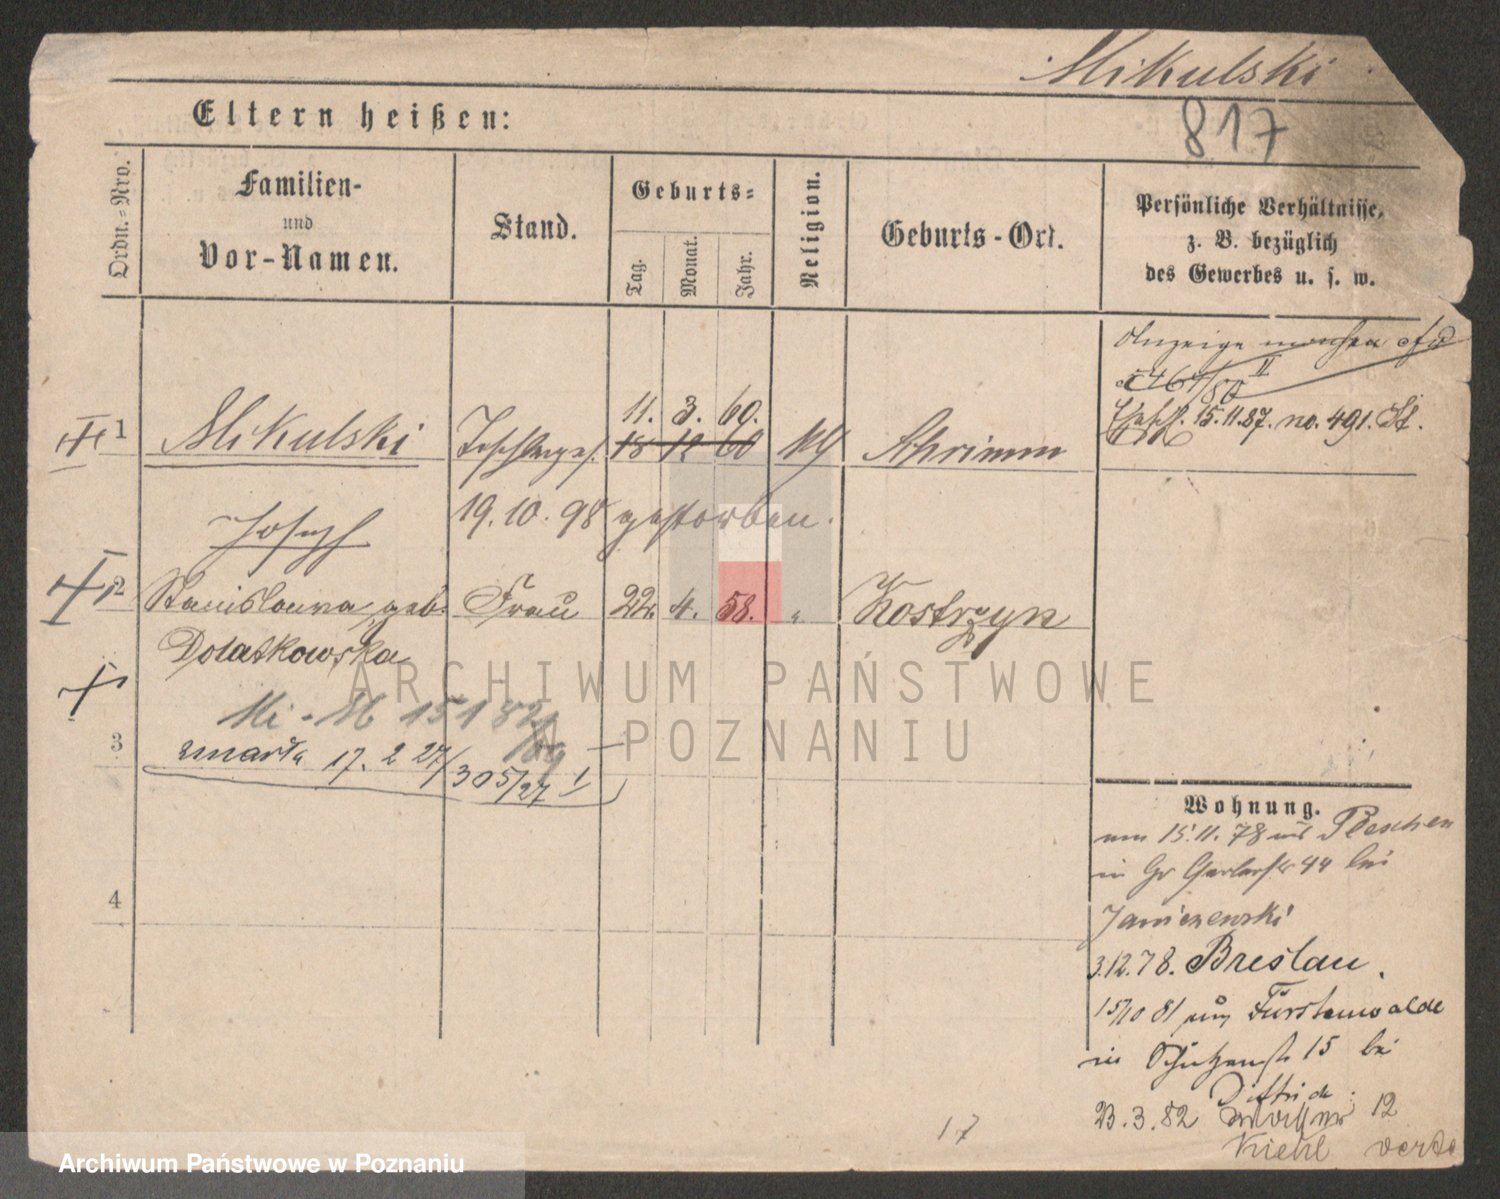 Mikulski
817
Eltern heißen:
Ordn.=Nro.
Familien-
und
Vor-Namen.
Stand.
Geburts=
Tag.
Monat.
Jahr.
Religion.
Geburts-Ort.
Persönliche Verhältnisse,
z. B. bezüglich
des Gewerbes u. s. w.
II
15.11.87. no. 491. St.
11. 3. 60.
1 Mikulski 18 12 60 Schrimm
Joseph
19. 10. 98 gestorben.
2 Stanislawa geb. Frau 22. 4. 58. " Kostrzyn
Dolatkowska
3
zmarła 17. 2 27/305/27 I
4
Wohnung.
15.11.78 aus Pleschen
in Gr Gerberstr 44 bei
Janiszewski
3.12.78. Breslau.
15/10 81 aus Fürstenwalde
in Schützenstr 15 bei
23.3.82 12
Kiehl verte
17
ARCHIWUM PAŃSTWOWE
W POZNANIU
Archiwum Państwowe w Poznaniu